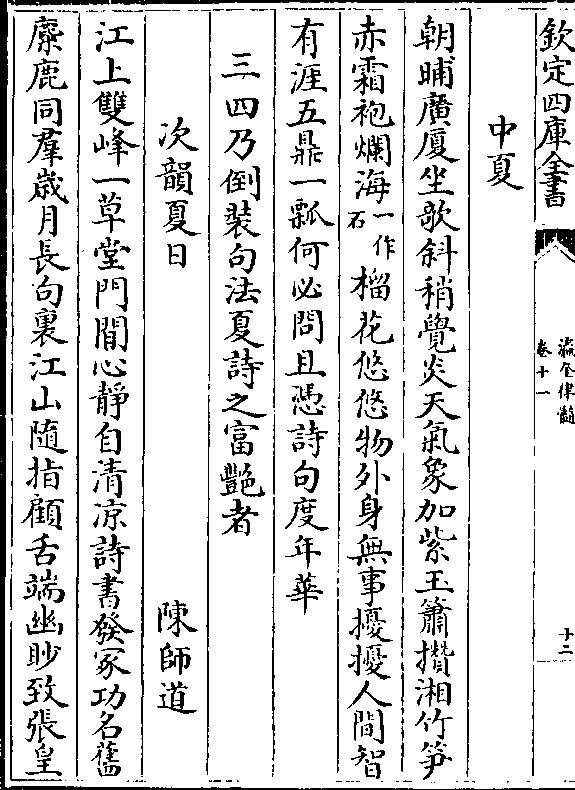 欽定四庫全書
瀛奎律髓
卷十一
十二
中夏
朝晡廣厦坐歌斜稍覺炎天氣象加紫玉簫攢湘竹笋
赤霜袍爛海一作石榴花悠悠物外身無事擾擾人間智
有涯五鼎一瓢何必問且憑詩句度年華
三四乃倒裝句法夏詩之富豔者
次韻夏日 陳師道
江上雙峰一草堂門閒心靜自清凉詩書發冢功名舊
麋鹿同羣歲月長句裏江山隨指顧舌端幽眇致張皇